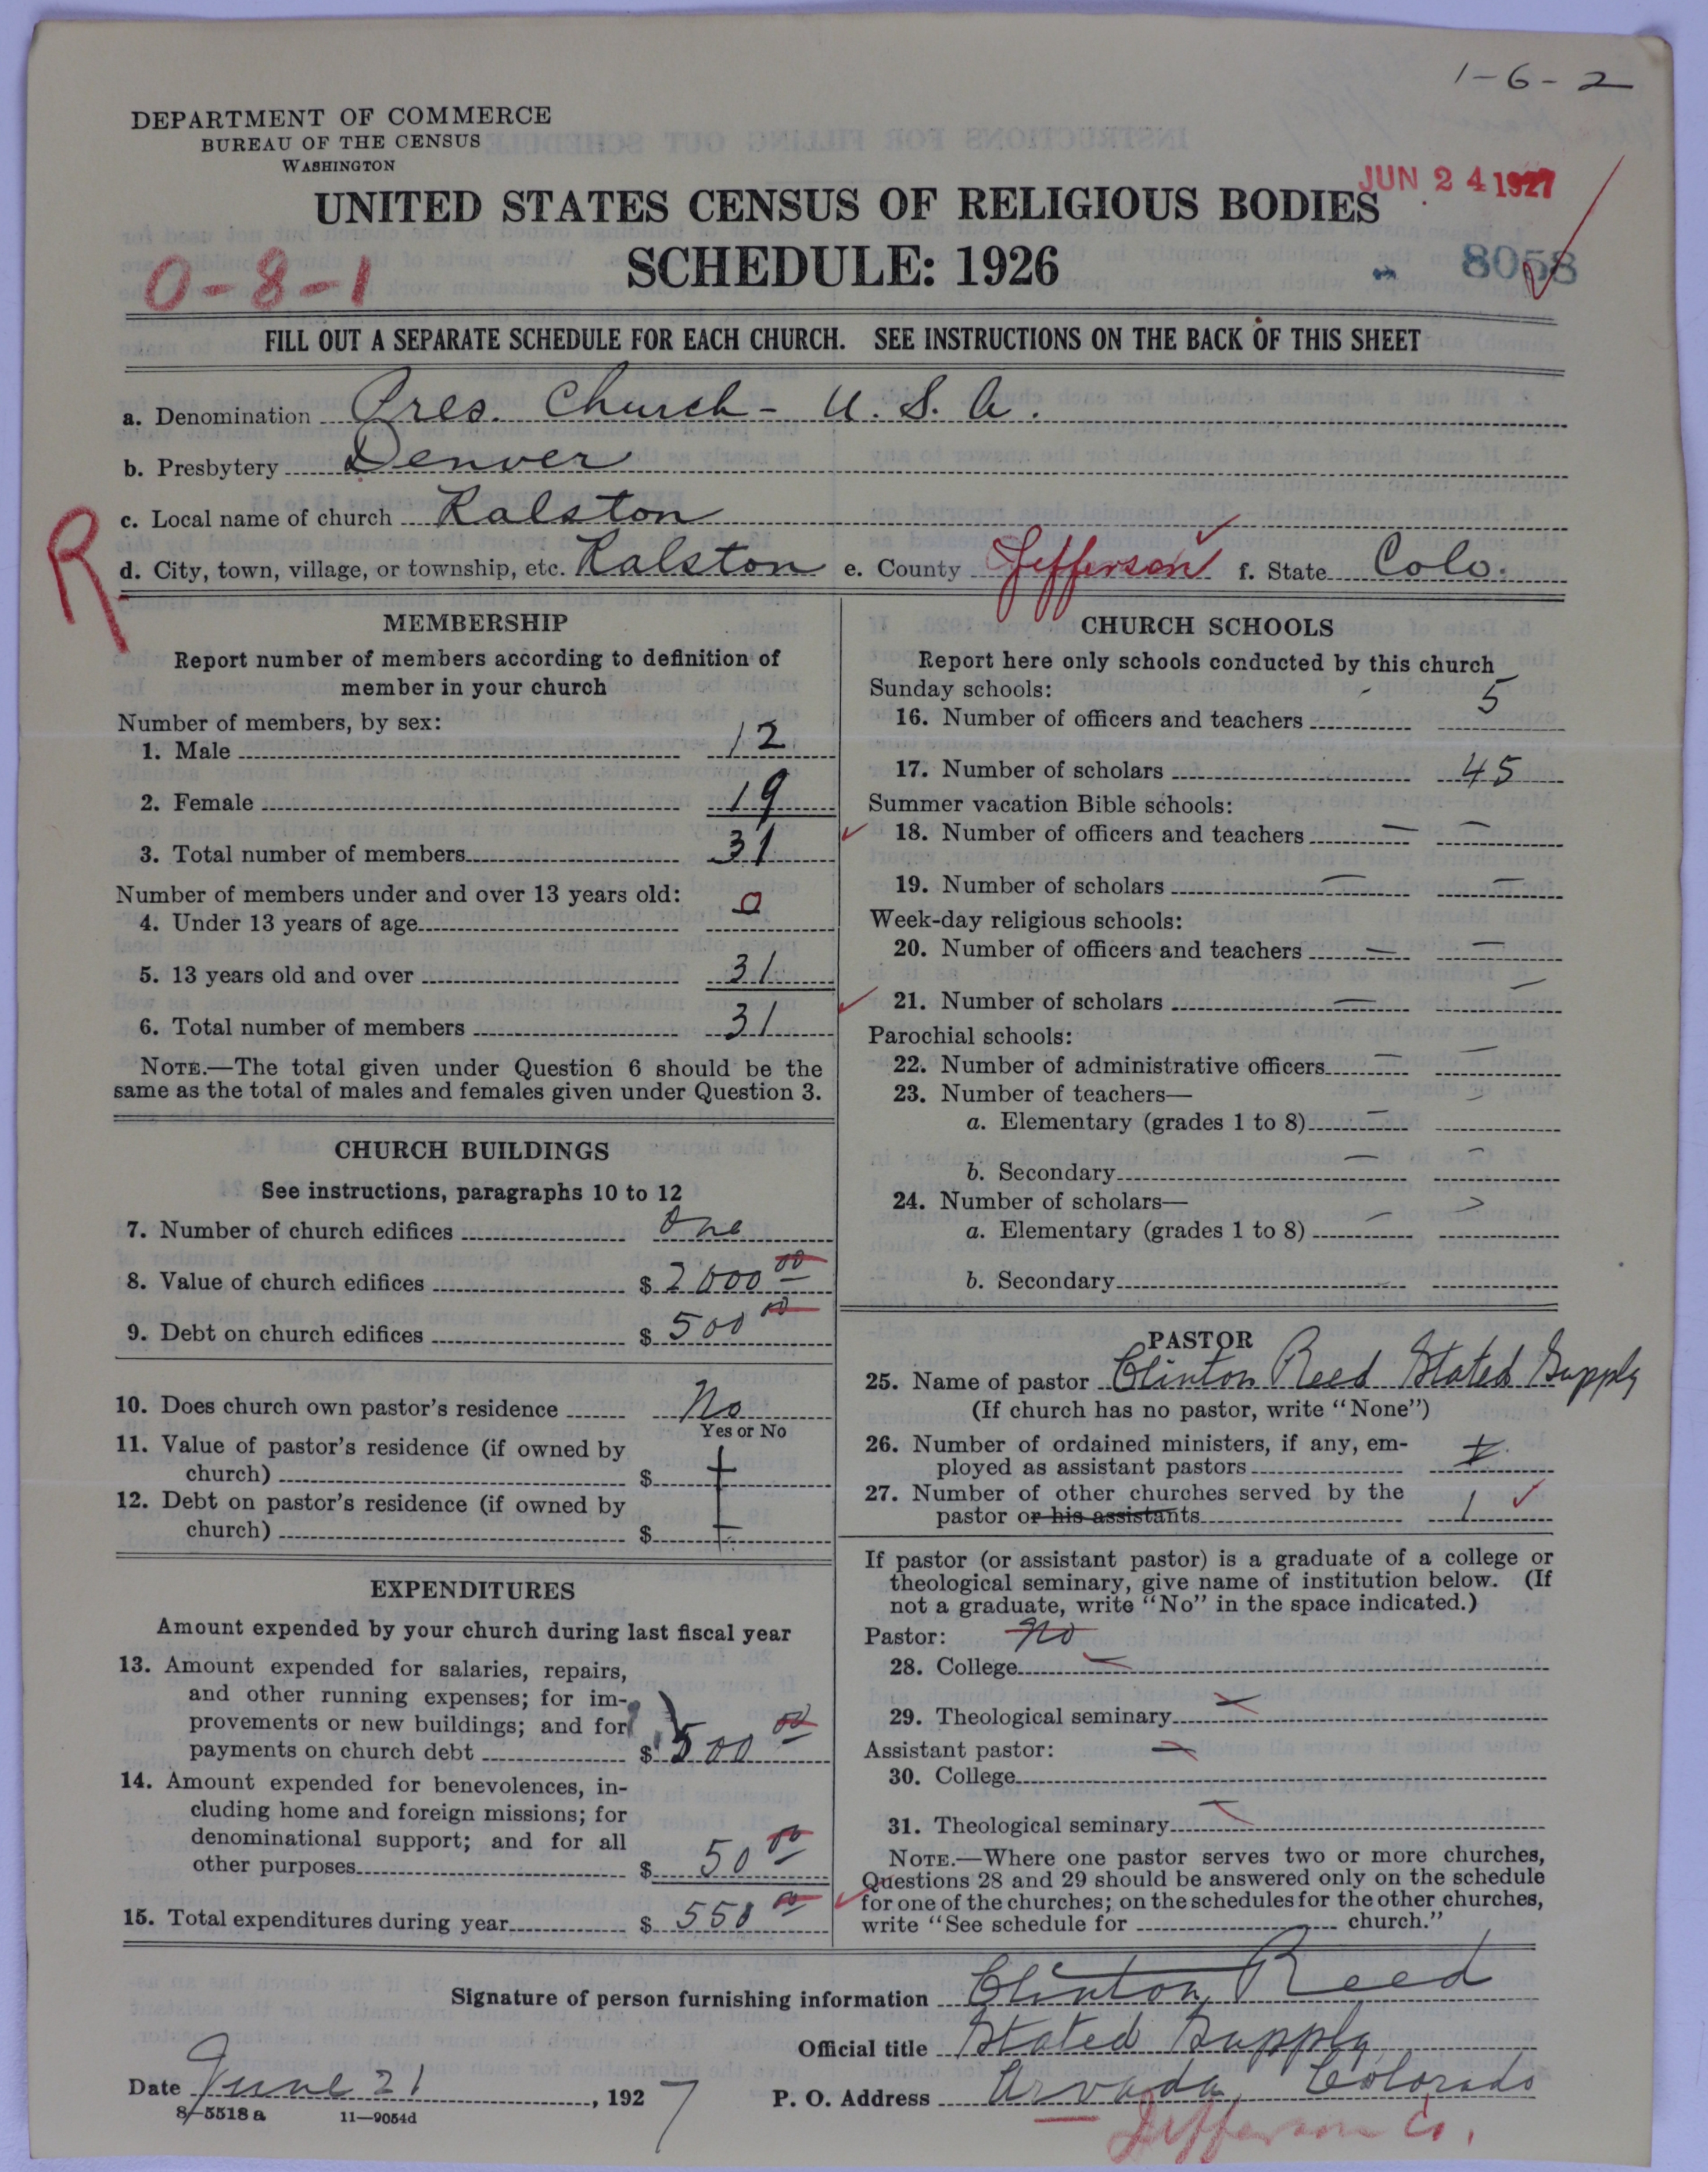 1-6-2
DEPARTMENT OF COMMERCE
BUREAU OF THE CENSUS
WASHINGTON
JUN 24 1927
UNITED STATES CENSUS OF RELIGIOUS BODIES
SCHEDULE: 1926
0-8-1
8058
FILL OUT A SEPARATE SCHEDULE FOR EACH CHURCH. SEE INSTRUCTIONS ON THE BACK OF THIS SHEET
a. Denomination Pres. Church - U.S.A.
b. Presbytery Denver
c. Local name of church Ralston
R
d. City, town, village, or township, etc. Ralston e. County Jefferson f. State Colo.
MEMBERSHIP
Report number of members according to definition of
member in your church
Number of members, by sex:
1. Male 12
2. Female 19
3. Total number of members 31
Number of members under and over 13 years old:
4. Under 13 years of age 0
5. 13 years old and over 31
6. Total number of members 31
NOTE.—The total given under Question 6 should be the
same as the total of males and females given under Question 3.
CHURCH BUILDINGS
See instructions, paragraphs 10 to 12
7. Number of church edifices One
8. Value of church edifices $ 2000 00
9. Debt on church edifices $ 500 00
10. Does church own pastor's residence No
Yes or No
11. Value of pastor's residence (if owned by
church) $
12. Debt on pastor's residence (if owned by
church) $
EXPENDITURES
Amount expended by your church during last fiscal year
13. Amount expended for salaries, repairs,
and other running expenses; for im-
provements or new buildings; and for
payments on church debt $ 500 00
14. Amount expended for benevolences, in-
cluding home and foreign missions; for
denominational support; and for all
other purposes $ 50 00
15. Total expenditures during year $ 550 00
CHURCH SCHOOLS
Report here only schools conducted by this church
Sunday schools:
16. Number of officers and teachers 5
17. Number of scholars 45
Summer vacation Bible schools:
18. Number of officers and teachers — —
19. Number of scholars — —
Week-day religious schools:
20. Number of officers and teachers — —
21. Number of scholars — —
Parochial schools:
22. Number of administrative officers — —
23. Number of teachers—
a. Elementary (grades 1 to 8) — —
b. Secondary — —
24. Number of scholars—
a. Elementary (grades 1 to 8) — —
b. Secondary
PASTOR
25. Name of pastor Clinton Reed Stated Supply
(If church has no pastor, write "None")
26. Number of ordained ministers, if any, em-
ployed as assistant pastors
27. Number of other churches served by the
pastor or his assistants 1
If pastor (or assistant pastor) is a graduate of a college or
theological seminary, give name of institution below. (If
not a graduate, write "No" in the space indicated.)
Pastor: no
28. College —
29. Theological seminary —
Assistant pastor: —
30. College
31. Theological seminary —
NOTE.—Where one pastor serves two or more churches,
Questions 28 and 29 should be answered only on the schedule
for one of the churches; on the schedules for the other churches,
write "See schedule for church."
Signature of person furnishing information Clinton Reed
Official title Stated Supply
Date June 21, 1927 P. O. Address Arvada, Colorado
8-5518 a 11—9054d
Jefferson Co.